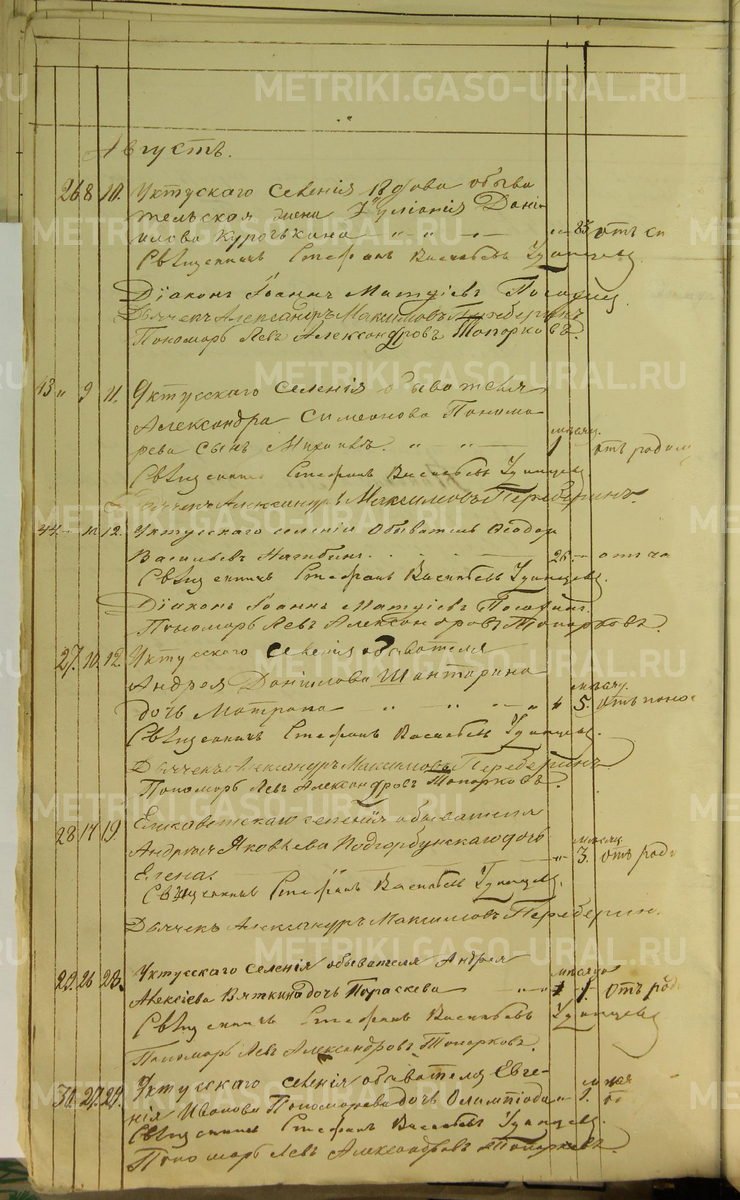 METRIKI.GASO-URAL.RU
Августъ.
26 8 10. Уктускаго селенія вдова обыва
тельская жена Іуліанія Дані
илова Курочкина " " — 83 отъ
Священникъ Стефанъ Васильевъ Удинцевъ.
Діаконъ Іоаннъ Матѳіевъ
Дьячекъ Александръ Максимовъ Переберинъ
Пономарь Левъ Александровъ Топорковъ.
43 " 9 11. Уктусскаго селенія обывателя
Александра Симеонова Понома
мѣсяц.
рева сынъ Михаилъ. " " — 1 отъ родим
Священникъ Стефанъ Васильевъ Удинцевъ
Дьячекъ Александръ Максимовъ Переберинъ.
44. — 10. 12. Уктусскаго селенія обыватель Ѳеодоръ
Васильевъ Нагибинъ. — 26 — отъ ча
Священникъ Стефанъ Васильевъ Удинцевъ.
Діаконъ Іоаннъ Матѳіевъ
Пономарь Левъ Александровъ Топорковъ.
27. 10. 12. Уктусскаго селенія обывателя
Андрея Данилова Шантарина
мѣсяц.
дочь Матрона " " " 5. отъ понос
Священникъ Стефанъ Васильевъ Удинцевъ.
Дьячекъ Александръ Максимовъ Переберинъ
Пономарь Левъ Александровъ Топорковъ.
28 17 19. Елисаветскаго селенія обывателя
Андрея Яковлева Подгорбунскаго дочь
мѣсяц
Елена. — " 3. отъ роди
Священникъ Стефанъ Васильевъ Удинцевъ.
Дьячекъ Александръ Максимовъ Переберин.
29. 26 28. Уктусскаго селенія обывателя Андрея
мѣсяцъ
Алексіева Вяткина дочь Параскева " 1. отъ род
Священникъ Стефанъ Васильевъ Удинцевъ
Пономарь Левъ Александровъ Топорковъ.
30. 27. 29. Уктусскаго селенія обывателя Евге-
нія Иванова Пономарева дочь Олимпіада — 1.
Священникъ Стефанъ Васильевъ Удинцевъ.
Пономарь Левъ Александровъ Топорковъ.